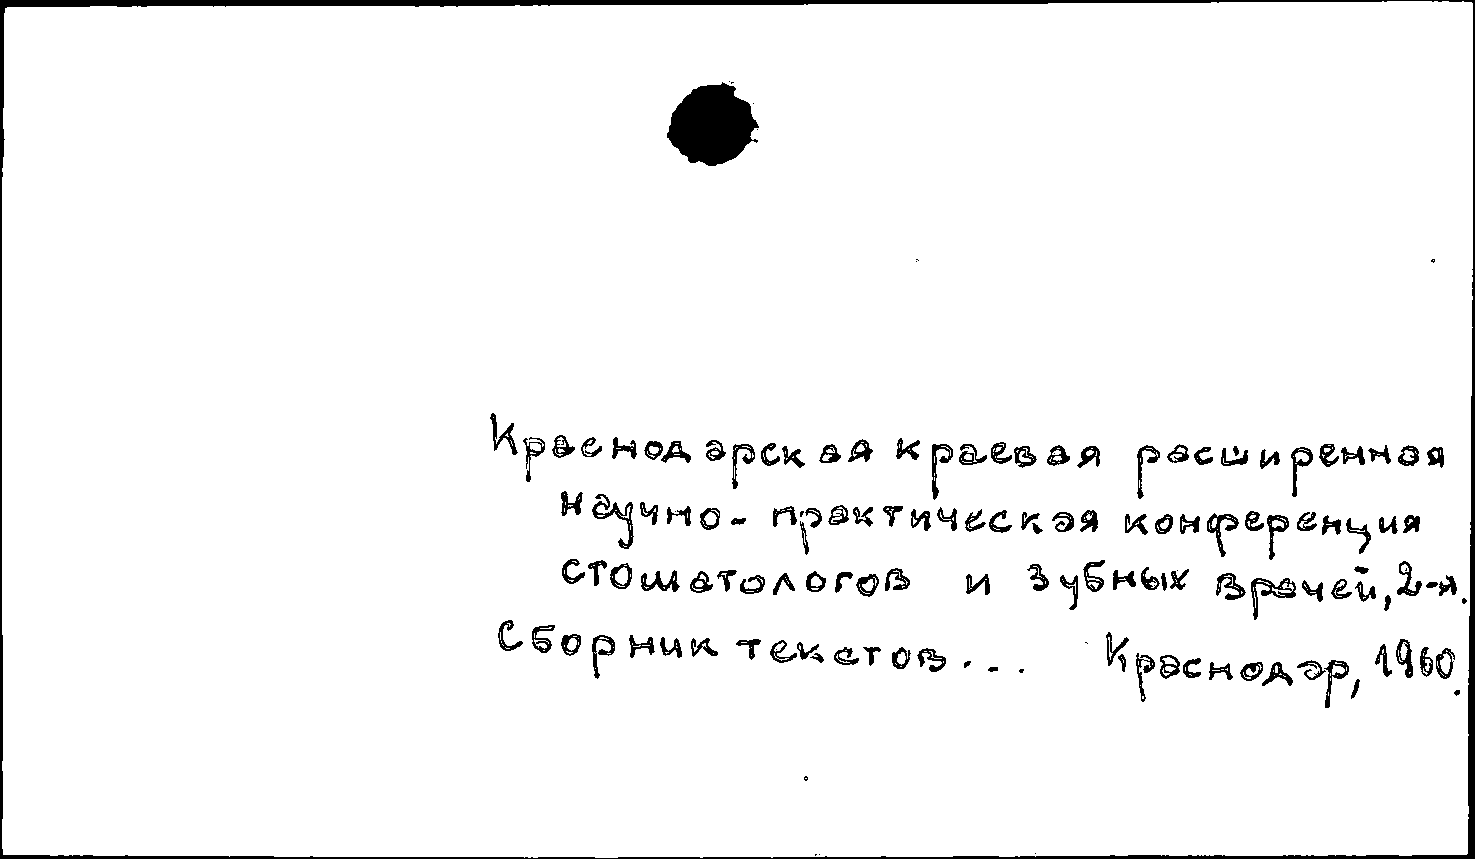 Краснодарская краевая расширенная
научно-практическая конференция
стоматологов и зубных врачей, 2-я.
Сборник текстов... Краснодар, 1960.